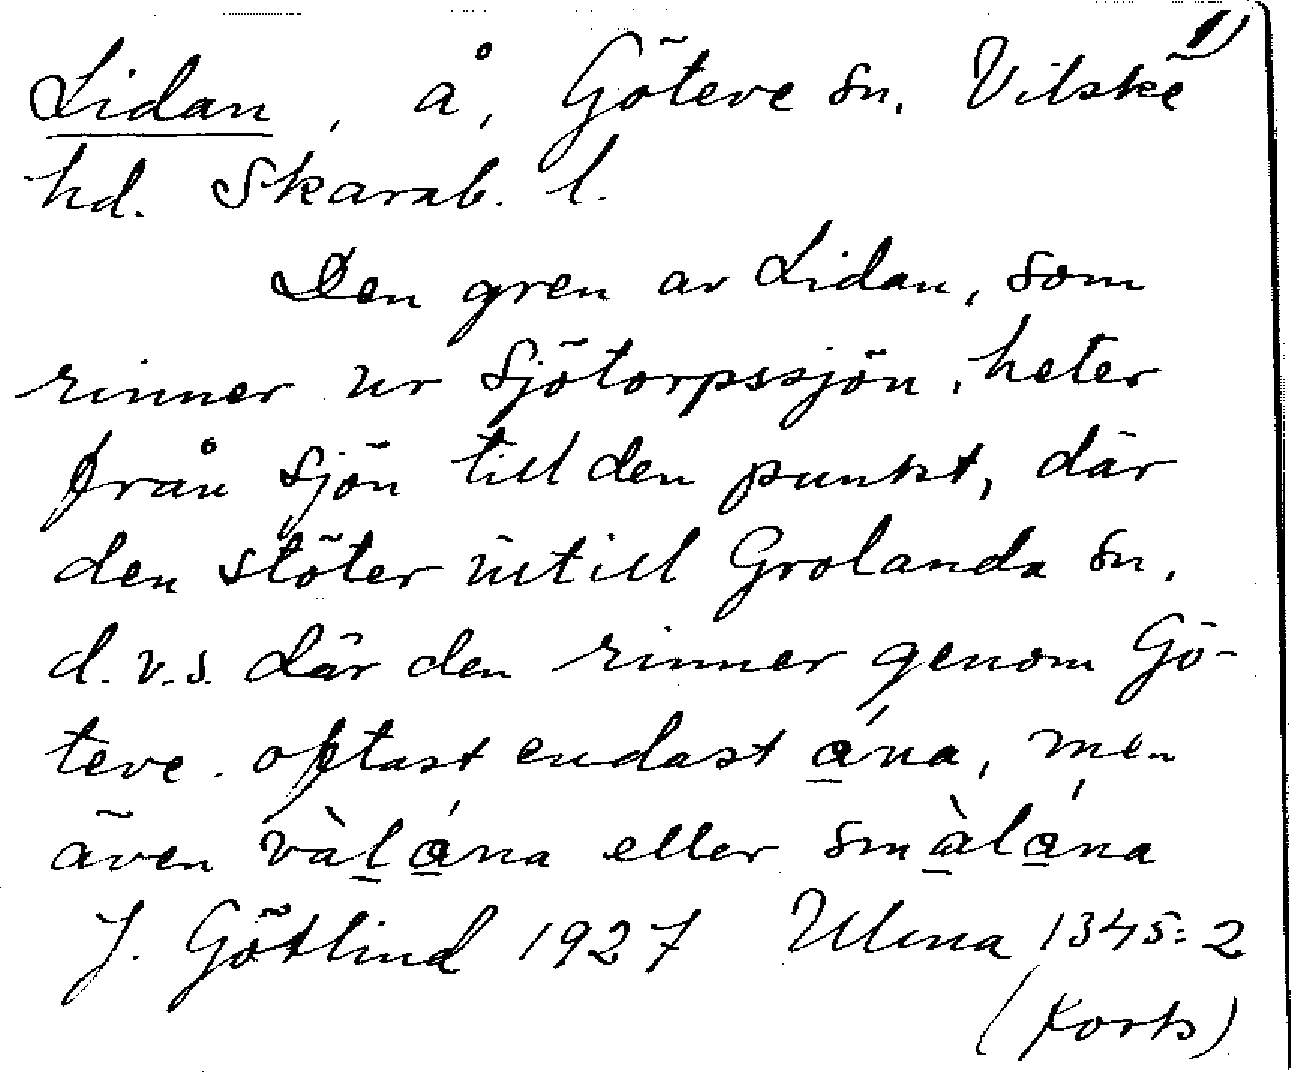 1)
Lidan, å, Göteve sn, Vilske
hd. Skarab. l.
Den gren av Lidan, som
rinner ur Sjötorpssjön, heter
från sjön till den punkt, där
den stöter intill Grolanda sn,
d.v.s. där den rinner genom Gö-
teve. oftast endast á̲na, men
även vàl̲á̲na eller smà̲lá̲na
J. Götlind 1927 Ulma 1345:2
(Forts)